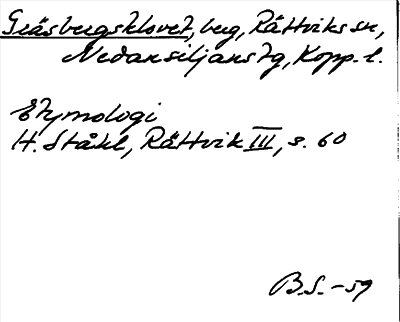 Gräsbergsklovet, berg, Rättviks sn,
Nedansiljans tg, Kopp. l.
Etymologi
H. Ståhl, Rättvik III, s. 60
B.S. -59